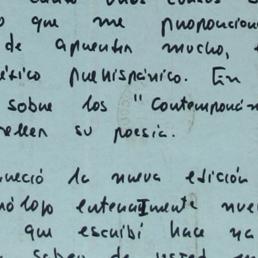 que me proporcion
de apuenten mucho,
ético prehispánico. En
sobre los "Contempor
releer su poesía.
neció la nueva edición
ólogo enteramente nue
que escribí hace ya
saber de usted